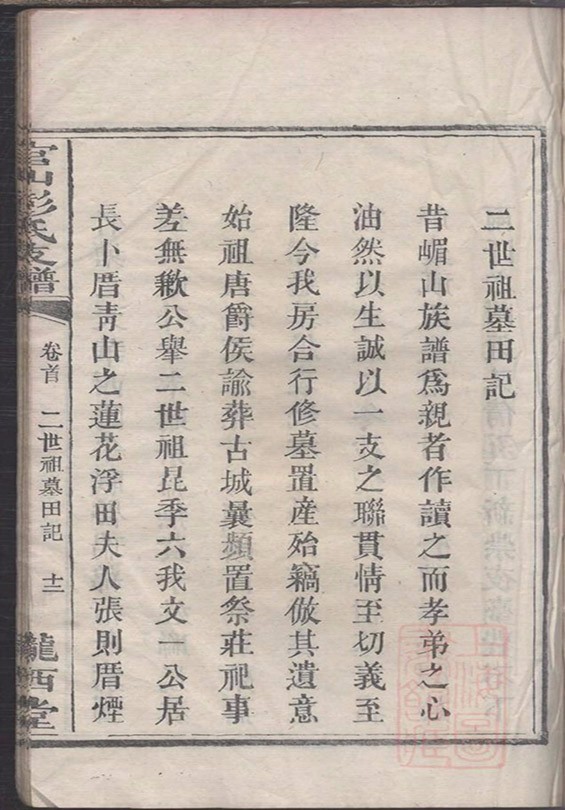 二世祖墓田記
昔嵋山族譜爲親者作讀之而孝弟之心
油然以生誠以一支之聯貫情至切義至
隆今我房合行修墓置産殆竊倣其遺意
始祖唐爵侯諭葬古城曩頻置祭莊祀事
差無歉公舉二世祖昆季六我文公居
長卜厝靑山之蓮花浮田夫人張則厝煙
官山彭氏支譜
卷首
二世祖墓田記
十二
隴西堂